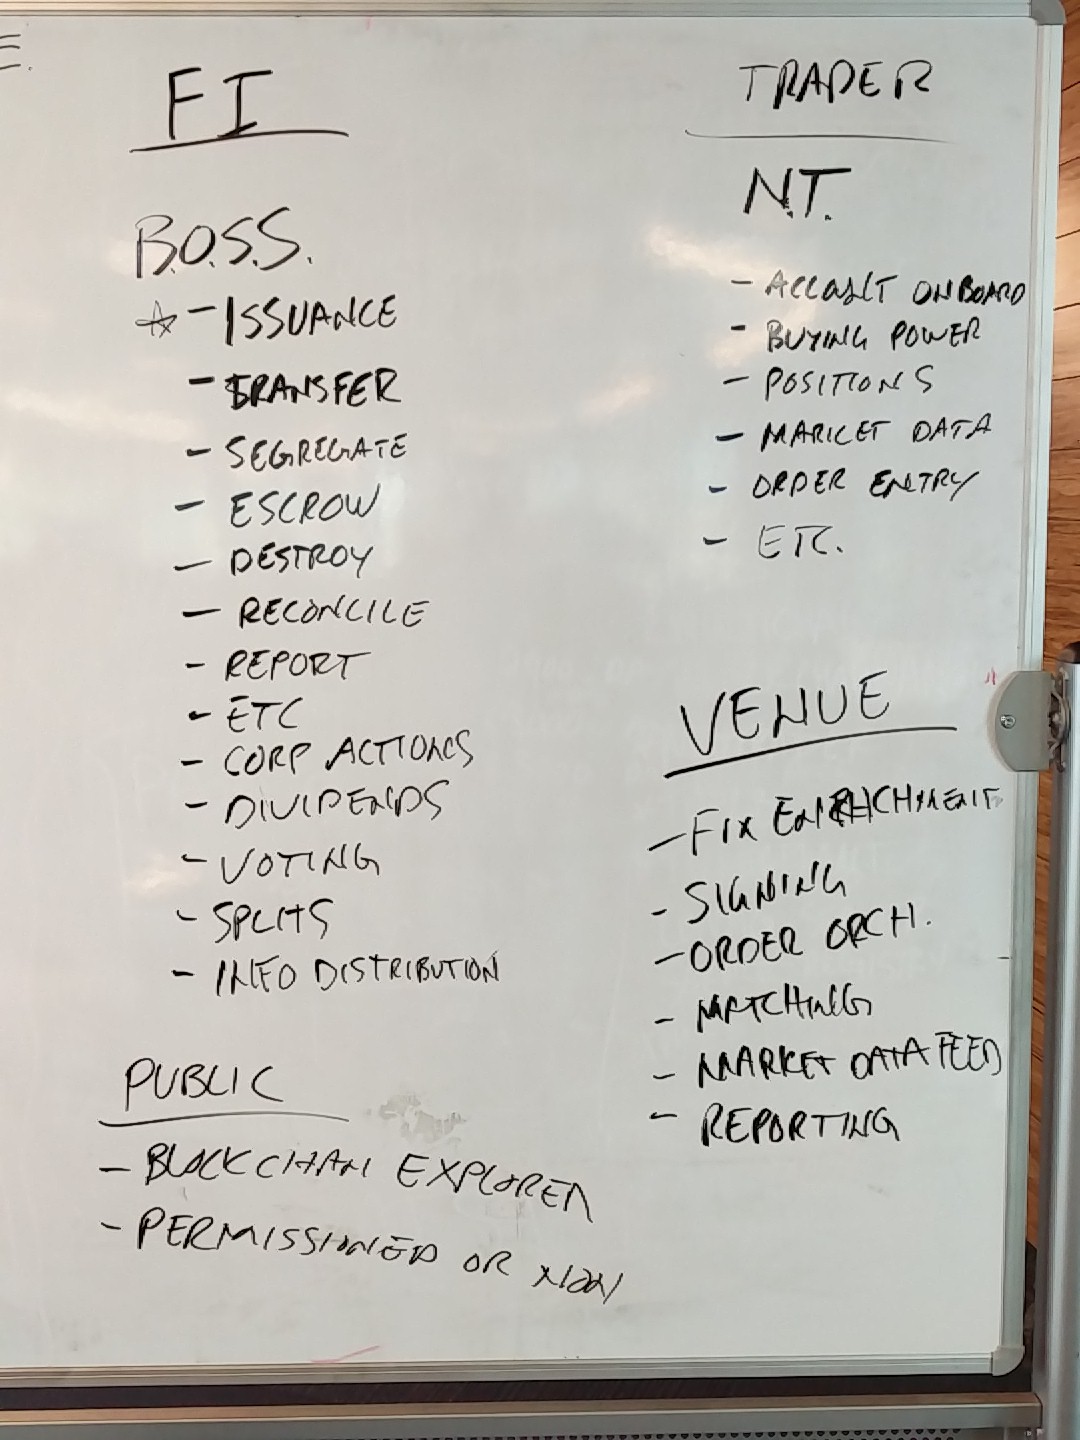 E.
FI
B.O.S.S.
☆ - ISSUANCE
- TRANSFER
- SEGREGATE
- ESCROW
- DESTROY
- RECONCILE
- REPORT
- ETC
- CORP ACTIONS
- DIVIDENDS
- VOTING
- SPLITS
- INFO DISTRIBUTION
PUBLIC
- BLOCKCHAIN EXPLORER
- PERMISSIONED OR NON
TRADER
N.T.
- ACCOUNT ONBOARD
- BUYING POWER
- POSITIONS
- MARKET DATA
- ORDER ENTRY
- ETC.
VENUE
- FIX ENRICHMENT
- SIGNING
- ORDER ORCH.
- MATCHING
- MARKET DATA FEED
- REPORTING